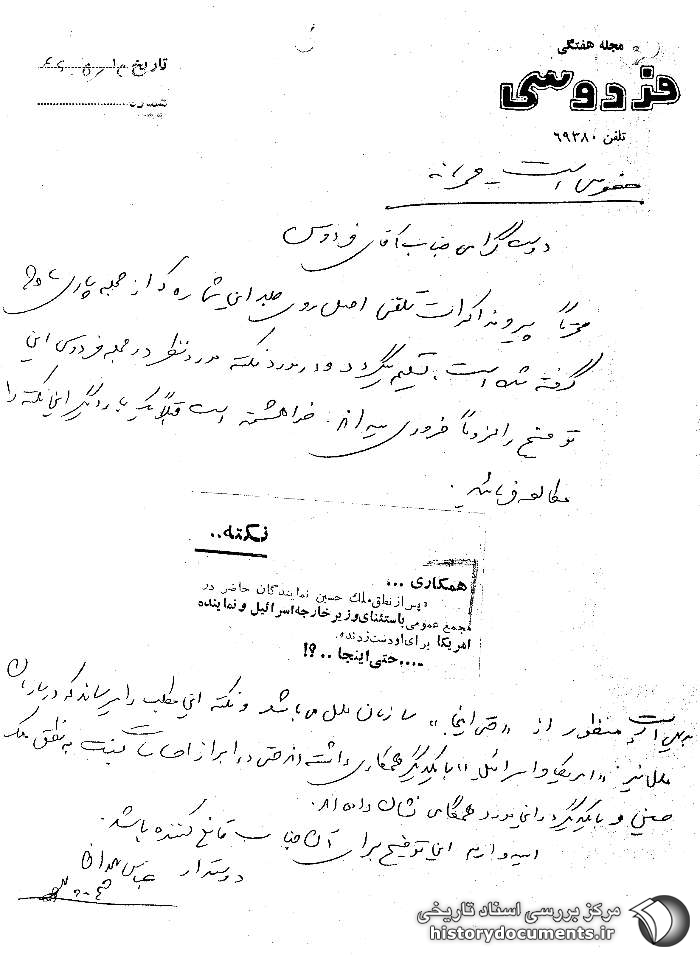 مجله هفتگی
فردوسی
تلفن ۶۹۳۸۰
تاریخ
شماره
خصوصی است - محرمانه
دوست گرامی جناب آقای فردوس
محترماً پیرو مذاکرات تلفنی اصل روی جلد این شماره که از مجله پاری
گرفته شده است، تقدیم میگردد و در مورد نکته مورد نظر در مجله فردوسی این
توضیح را لزوماً ضروری میداند. خواهشمند است یکبار دیگر این نکته را
مطالعه فرمائید.
نکته..
همکاری ...
«پس از نطق ملك حسین نمایندگان حاضر در
مجمع عمومی باستثنای وزیر خارجه اسرائیل و نماینده
امریکا برای او دست زدند».
....حتی اینجا ..؟!
بدیهی است منظور از «حتی اینجا» سازمان ملل می باشد و نکته این مطلب را میرساند که در سازمان
ملل نیز «امریکا و اسرائیل» با یکدیگر همکاری داشته اند حتی در ابراز احساسات نسبت به نطق ملک
حسین و با یکدیگر در این مورد همگامی نشان داده اند.
امیدوارم این توضیح برای آن جناب قانع کننده باشد.
دوستدار عباس پهلوان
مرکز بررسی اسناد تاریخی
historydocuments.ir